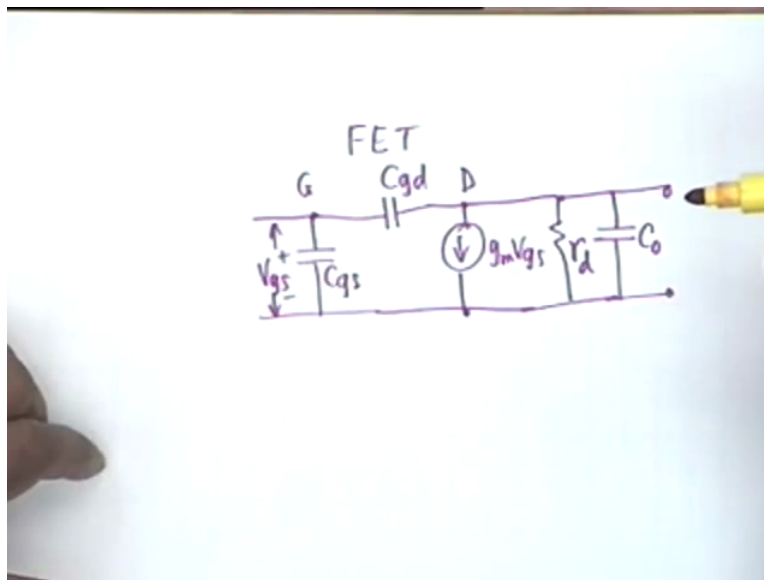 FET
G Cgd D
+
Vgs Cgs gmVgs rd Co
-